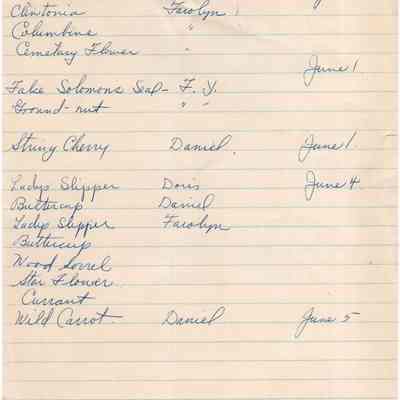 Clintonia Farolyn
Columbine "
Cemetary Flower "
June 1
False Solomons Seal - F. Y.
Ground-nut " "
String Cherry Daniel. June 1.
Ladys Slipper Doris June 4.
Buttercup Daniel
Ladys Slipper Farolyn
Buttercup
Wood Sorrel
Star Flower
Currant
Wild Carrot. Daniel June 5